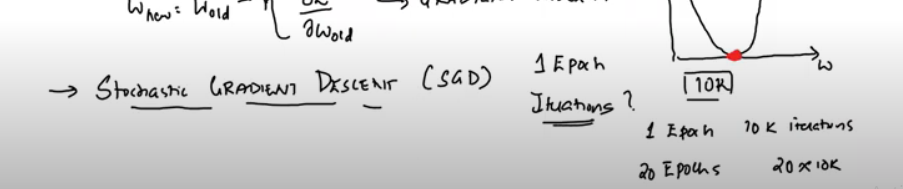 Wnew = Wold - η ( ∂L / ∂Wold )
W
→ Stochastic GRADIENT DESCENT (SGD)
1 Epoch
Iterations ?
10K
1 Epoch 10K iterations
20 Epochs 20 x 10K